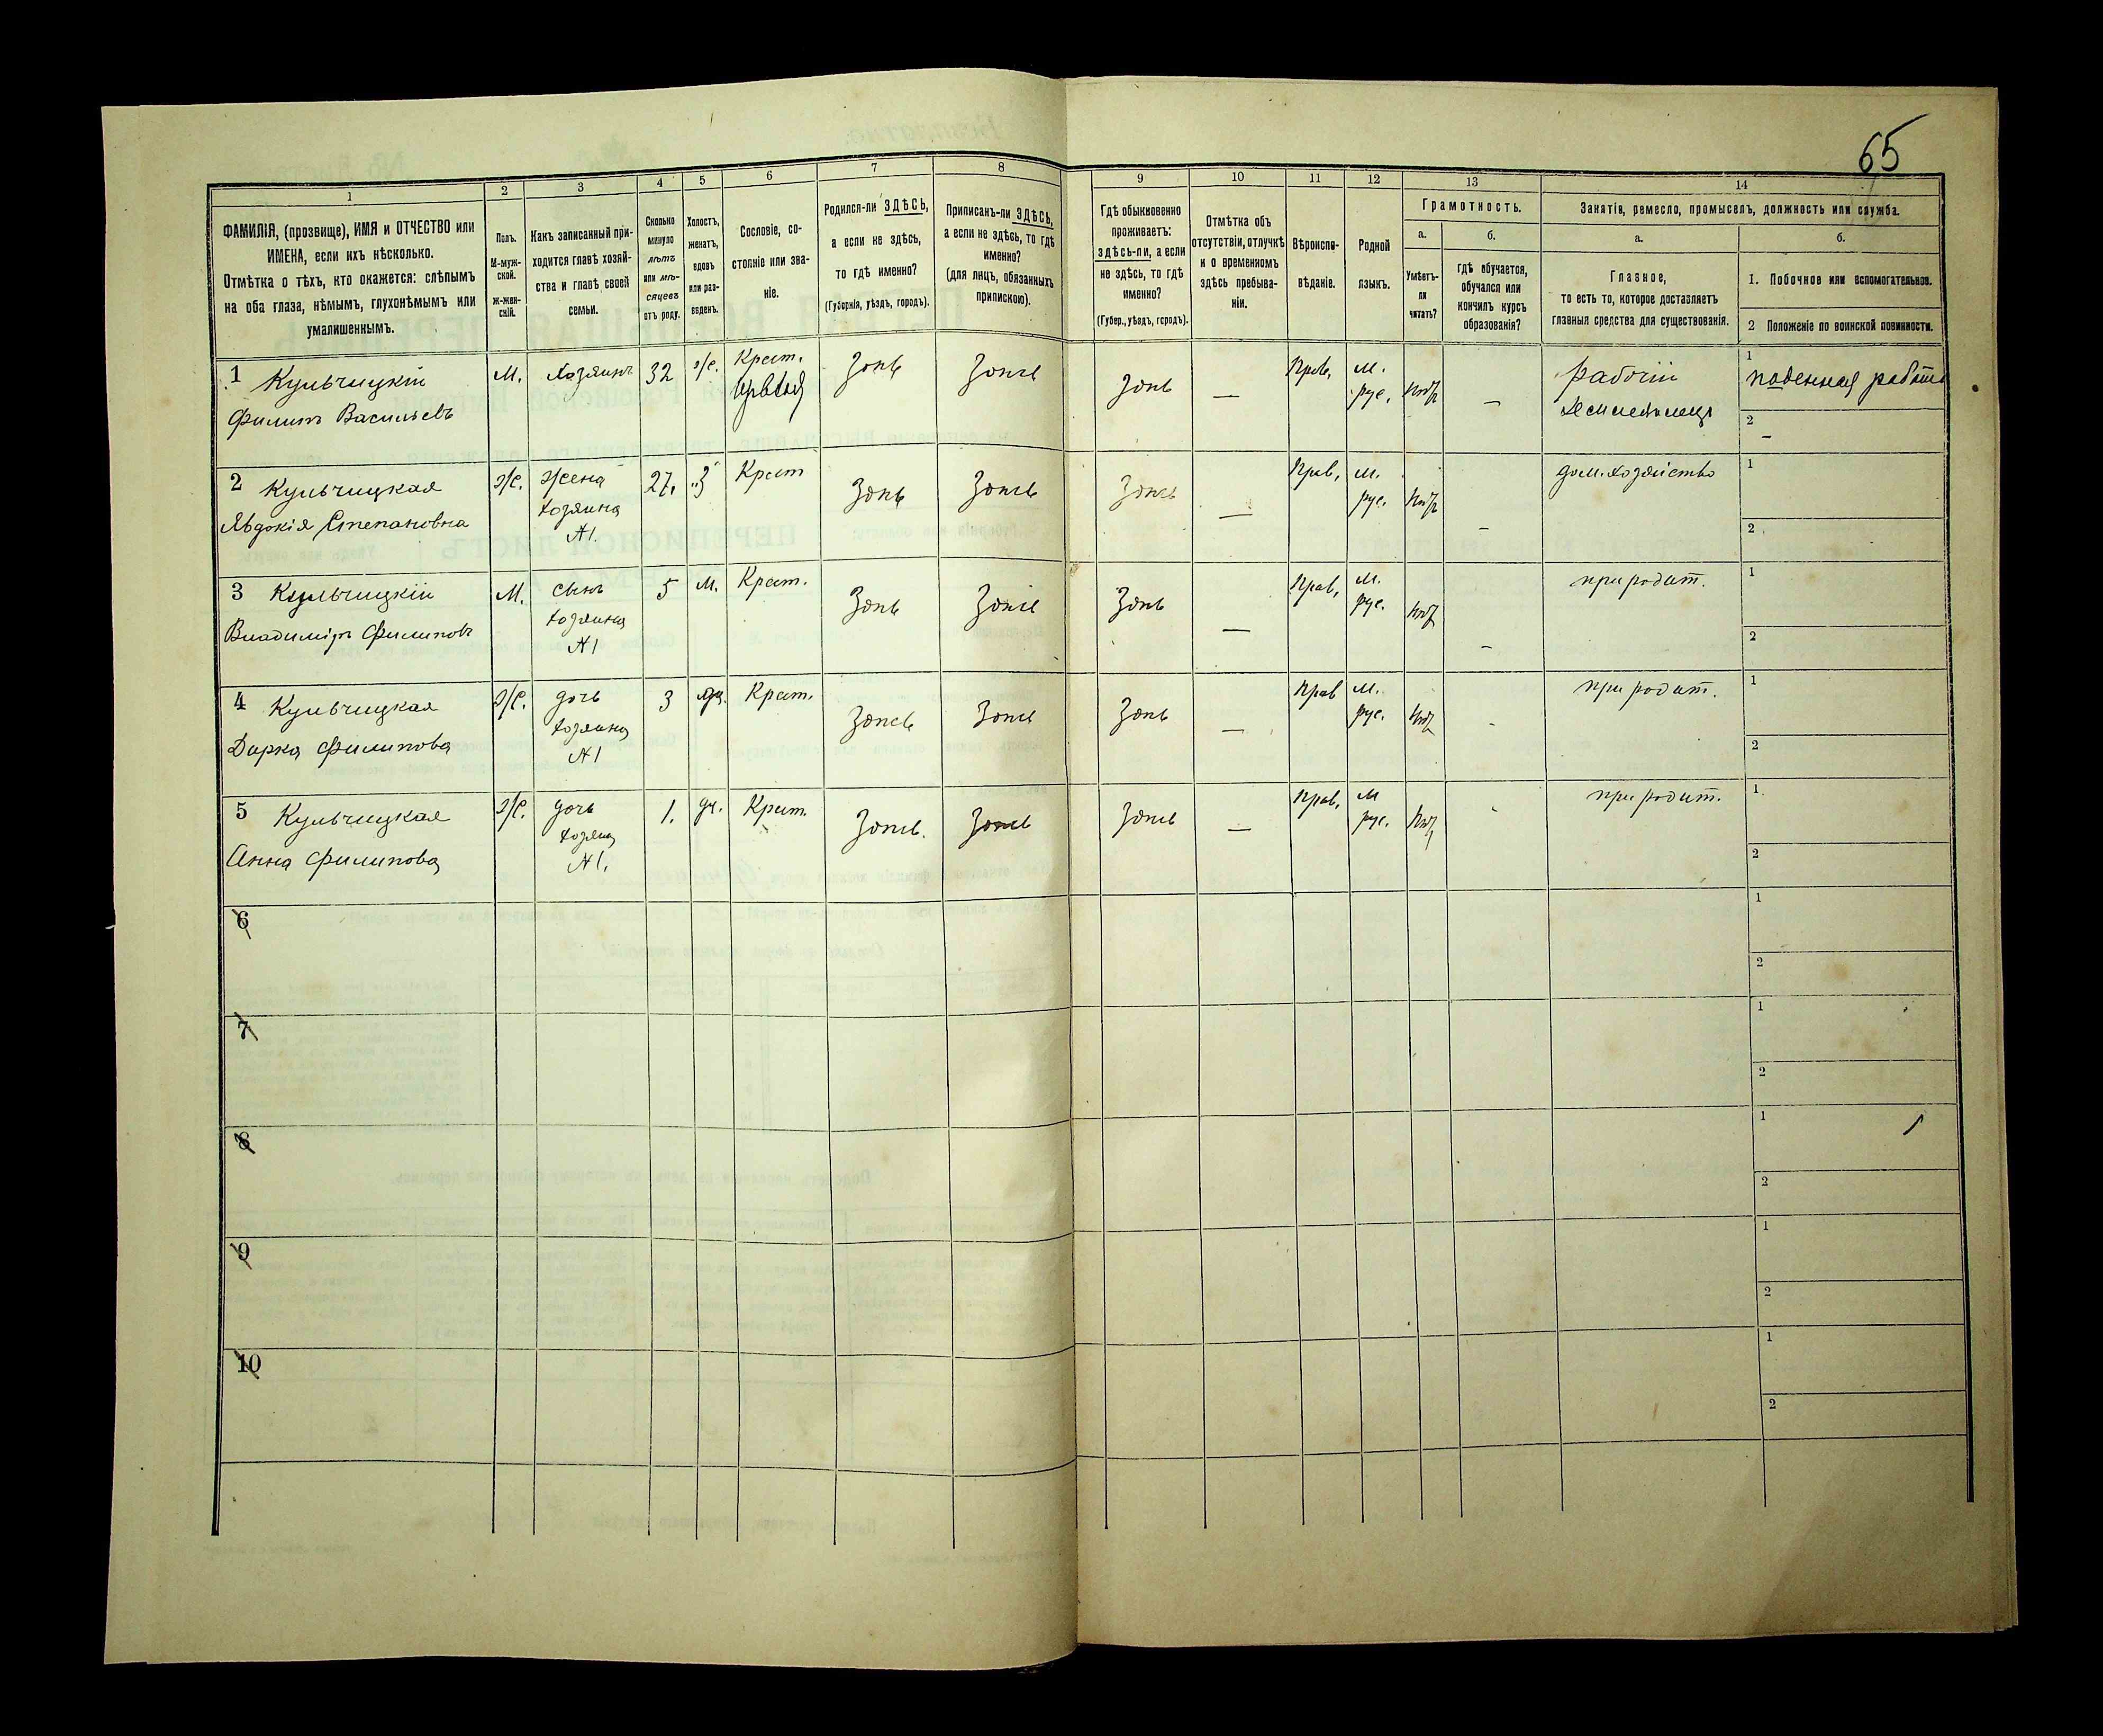 65
1
2
3
4
5
6
7
8
9
10
11
12
13
14
ФАМИЛІЯ, (прозвище), ИМЯ и ОТЧЕСТВО или
ИМЕНА, если ихъ нѣсколько.
Отмѣтка о тѣхъ, кто окажется: слѣпымъ
на оба глаза, нѣмымъ, глухонѣмымъ или
умалишеннымъ.
Полъ.
М-муж-
ской.
Ж-жен-
скій.
Какъ записанный при-
ходится главѣ хозяй-
ства и главѣ своей
семьи.
Сколько
минуло
лѣтъ
или мѣ-
сяцевъ
отъ роду.
Холостъ,
женатъ,
вдовъ
или раз-
веденъ.
Сословіе, со-
стояніе или зва-
ніе.
Родился-ли ЗДѢСЬ,
а если не здѣсь,
то гдѣ именно?
(Губернія, уѣздъ, городъ).
Приписанъ-ли ЗДѢСЬ,
а если не здѣсь, то гдѣ
именно?
(для лицъ, обязанныхъ
припискою).
Гдѣ обыкновенно
проживаетъ:
здѣсь-ли, а если
не здѣсь, то гдѣ
именно?
(Губер., уѣздъ, городъ).
Отмѣтка объ
отсутствіи, отлучкѣ
и о временномъ
здѣсь пребыва-
ніи.
Вѣроиспо-
вѣданіе.
Родной
языкъ.
Грамотность.
а.
б.
Умѣетъ-
ли
читать?
гдѣ обучается,
обучался или
кончилъ курсъ
образованія?
Занятіе, ремесло, промыселъ, должность или служба.
а.
б.
Главное,
то есть то, которое доставляетъ
главныя средства для существованія.
1. Побочное или вспомогательное.
2 Положеніе по воинской повинности.
1 Кульчицкій
Филипъ Васильевъ
М.
Хозяинъ
32
ж.
Крест.
Здѣсь
Здѣсь
Здѣсь
—
Прав.
м.
рус.
нѣтъ
—
рабочій
1
поденная работа
2
–
2 Кульчицкая
Явдокія Степановна
Ж.
Жена
хозяина
№1.
27.
З
Крест
Здѣсь
Здѣсь
Здѣсь
—
Прав.
м.
рус.
нѣтъ
–
дом. хозяйство
1
2
3 Кульчицкій
Владиміръ Филиповъ
М.
сынъ
хозяина
№1
5
м.
Крест.
Здѣсь
Здѣсь
Здѣсь
—
Прав.
м.
рус.
нѣтъ
–
при родит.
1
2
4 Кульчицкая
Дарка Филипова
Ж.
дочь
хозяина
№1
3
Крест.
Здѣсь
Здѣсь
Здѣсь
—
Прав
м.
рус.
нѣтъ
-
при родит.
1
2
5 Кульчицкая
Анна Филипова
Ж.
дочь
хозяина
№1.
1.
дч.
Крест.
Здѣсь.
Здѣсь
Здѣсь
—
Прав.
м
рус.
нѣтъ
при родит.
1
2
6
1
2
7
1
2
8
1
2
9
1
2
10
1
2